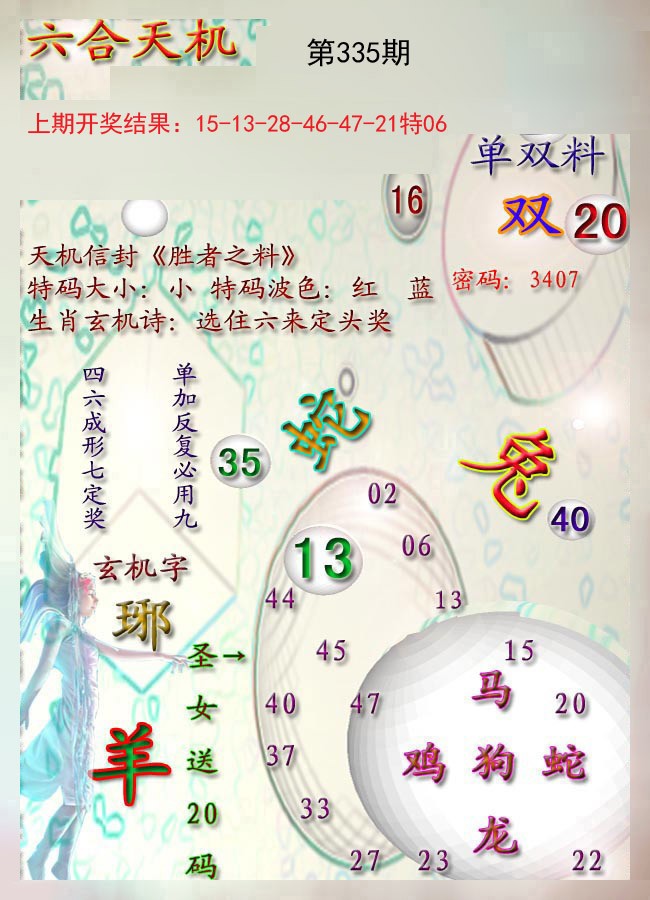 六合天机
第335期
上期开奖结果：15-13-28-46-47-21特06
单双料
16
双 20
天机信封《胜者之料》
特码大小：小 特码波色：红 蓝
密码：3407
生肖玄机诗：选住六来定头奖
四六成形七定奖
单加反复必用九
蛇
兔
35
40
02
13
06
玄机字
琊
44
13
圣女送20码
→
45
15
马
40
47
20
羊
37
鸡 狗 蛇
33
龙
27
23
22